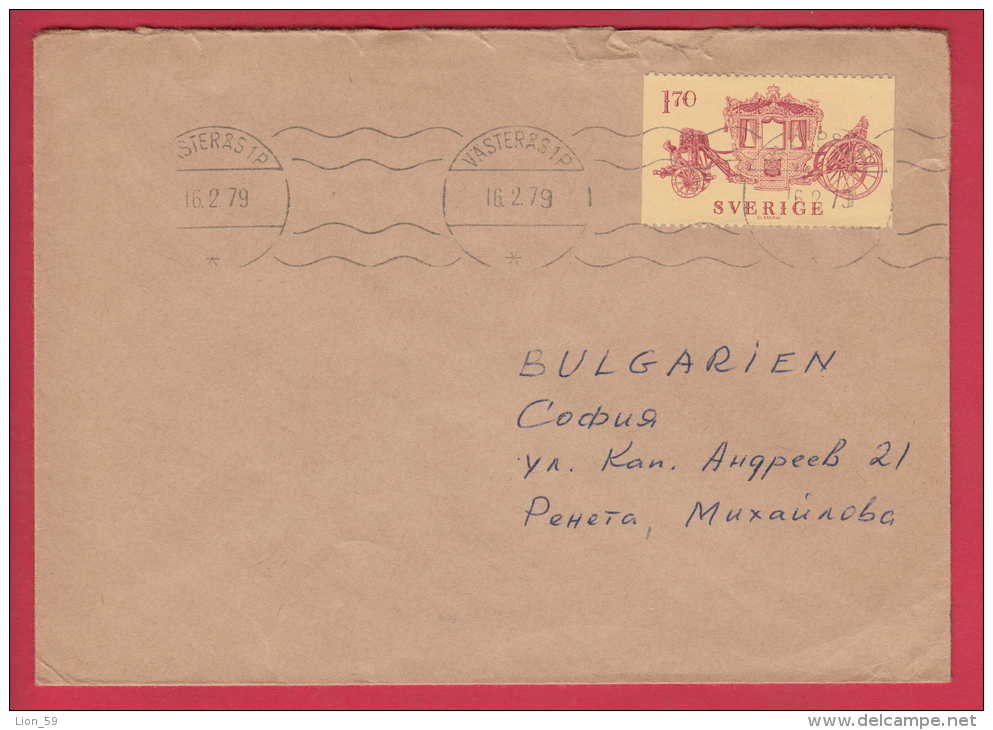 1.70
SVERIGE
VÄSTERÅS 1P
16.2.79
VÄSTERÅS 1P
16.2.79
16.2.79
BULGARIEN
София
ул. Кап. Андреев 21
Ренета, Михайлова
Lion_59
www.delcampe.net